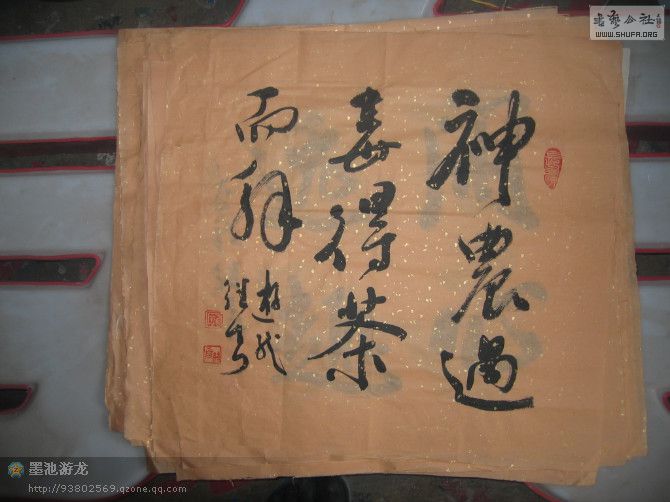 書藝公社
WWW.SHUFA.ORG
神農遇
毒得茶
而解
墨池游龙
http://93802569.qzone.qq.com